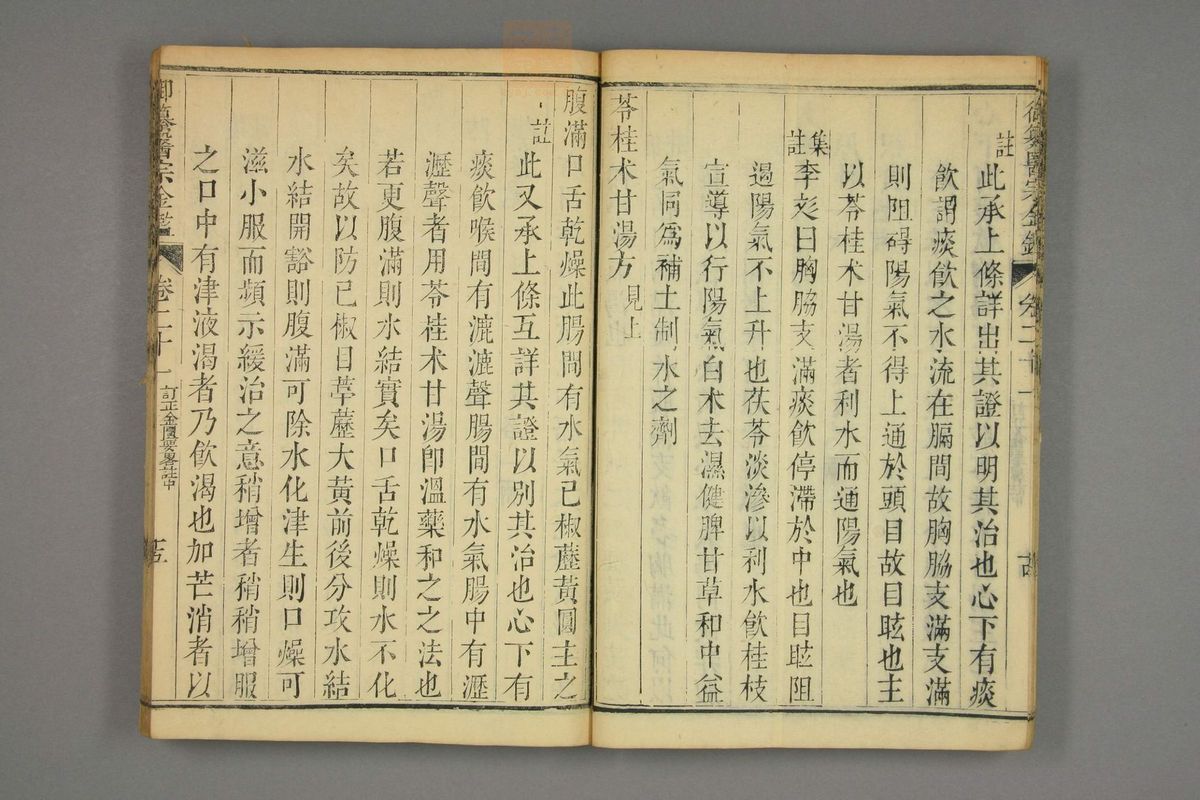 御纂醫宗金鑑 卷二十一
註
此承上條詳出其證以明其治也心下有痰
飲謂痰飲之水流在膈間故胸脇支滿支滿
則阻碍陽氣不得上通於頭目故目眩也主
以苓桂术甘湯者利水而通陽氣也
集註
李彣曰胸脇支滿痰飲停滯於中也目眩阻
遏陽氣不上升也茯苓淡滲以利水飲桂枝
宣導以行陽氣白术去濕健脾甘草和中益
氣同為補土制水之劑
苓桂术甘湯方 見上
腹滿口舌乾燥此腸間有水氣己椒藶黃圓主之
註
此又承上條互詳其證以別其治也心下有
痰飲喉間有漉漉聲腸間有水氣腸中有瀝
瀝聲者用苓桂术甘湯卽溫藥和之之法也
若更腹滿則水結實矣口舌乾燥則水不化
矣故以防己椒目葶藶大黃前後分攻水結
水結開豁則腹滿可除水化津生則口燥可
滋小服而頻示緩治之意稍增者稍稍增服
之口中有津液渴者乃飲渴也加芒消者以
御纂醫宗金鑑 卷二十一 訂正金匱要畧註中